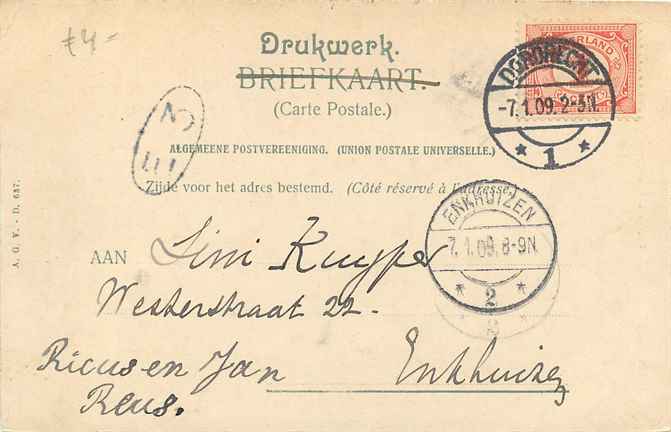 £4-
Drukwerk.
BRIEFKAART.
(Carte Postale.)
ALGEMEENE POSTVEREENIGING. (UNION POSTALE UNIVERSELLE.)
Zijde voor het adres bestemd. (Côté réservé à l'adresse.)
DORDRECHT
-7.1.09. 2-3N.
* 1 *
ENKHUIZEN
7.1.09. 8-9N
* 2 *
A. G. V. - D. 637.
AAN Lini Kuyper
Westerstraat 22.
Ricus en Jan
Reus.
Enkhuizen